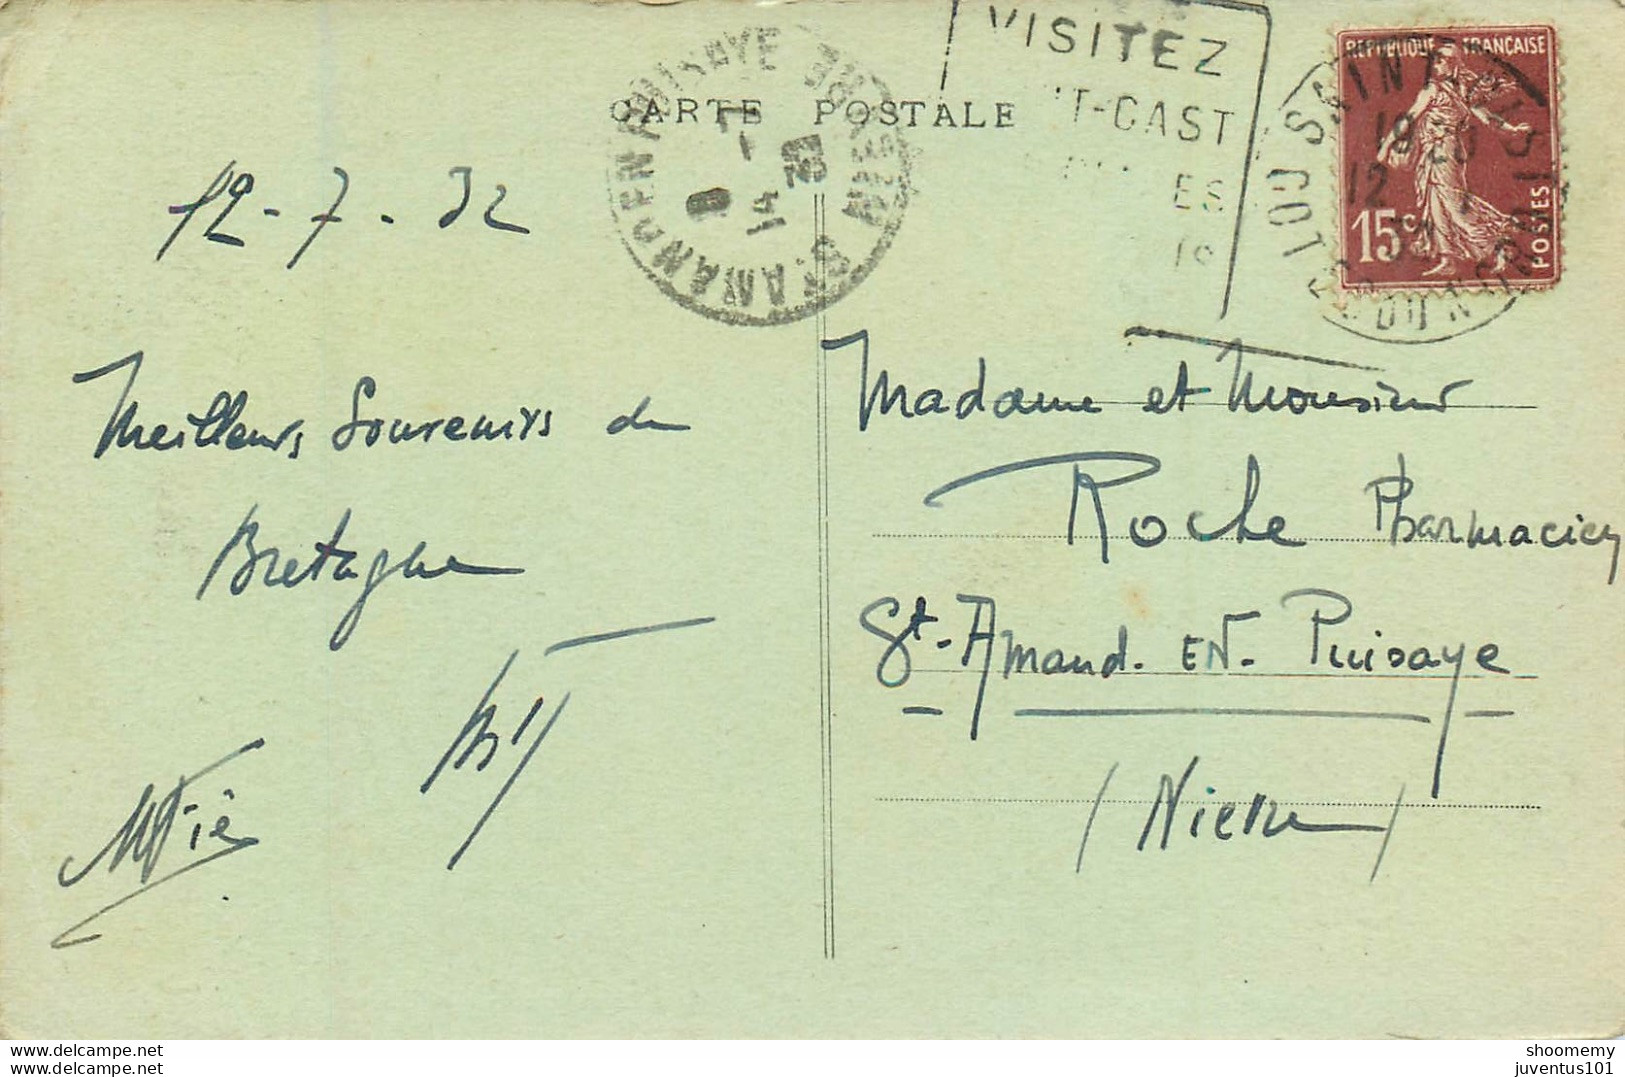 CARTE POSTALE
VISITEZ
T-CAST
ES
REPUBLIQUE FRANÇAISE
15c
POSTES
SAINT
COTES DU NORD
18 20
12 7
32
ST AMAND EN PUISAYE
NIEVRE
14
12-7-32
Meilleurs Souvenirs de
Bretagne
Madame et Monsieur
Roche Pharmacien
St-Amand-EN-Puisaye
(Nièvre)
shoomemy
juventus101